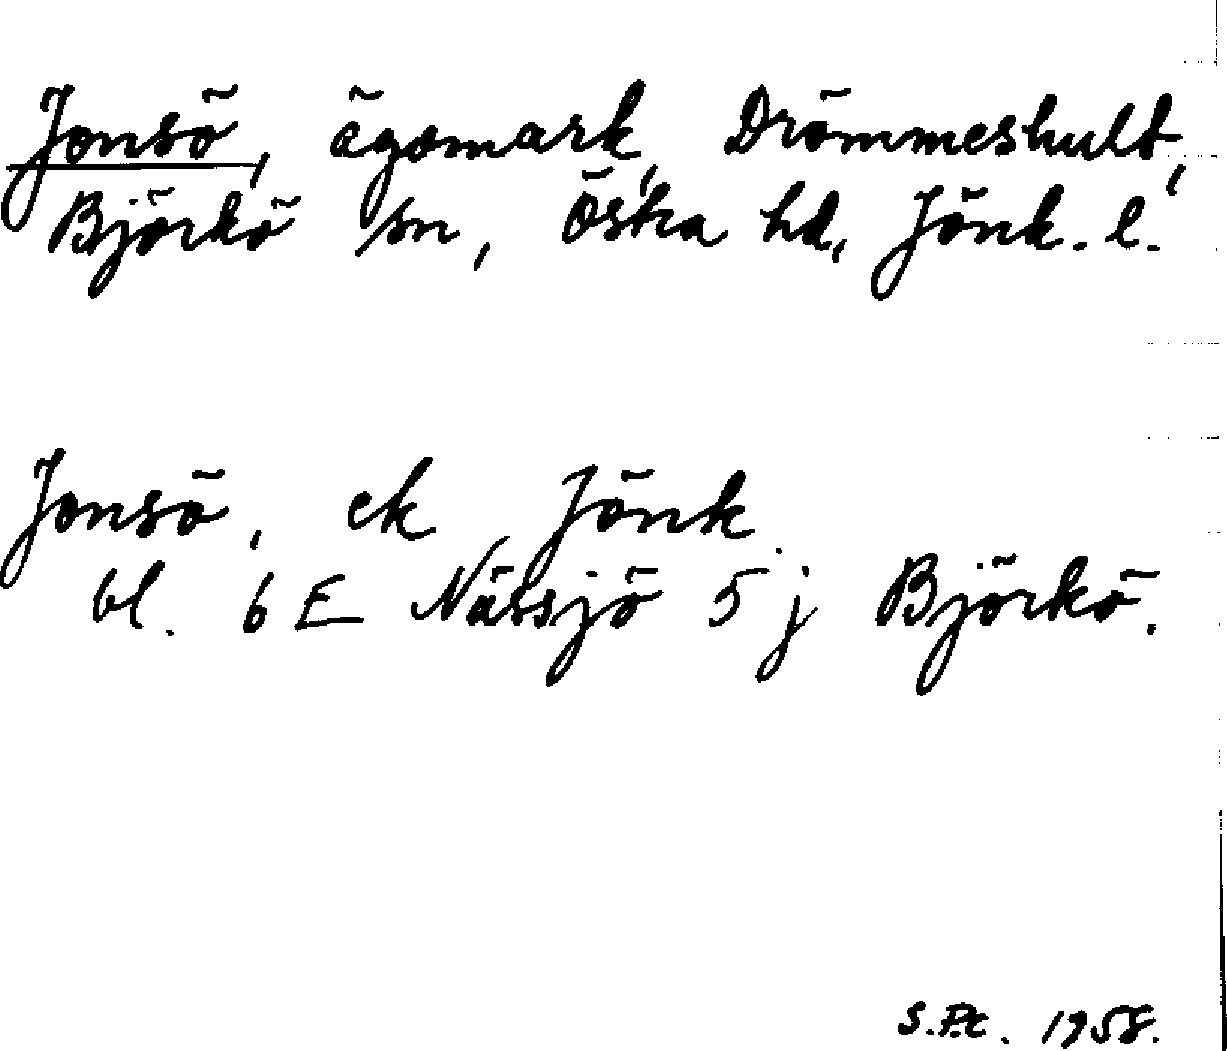 Jonsö, ägomark, Drömmeshult,
Björkö sn, Östra hd, Jönk. l.
Jonsö, ek Jönk.
bl. 6 E Nässjö 5 j Björkö.
1958.